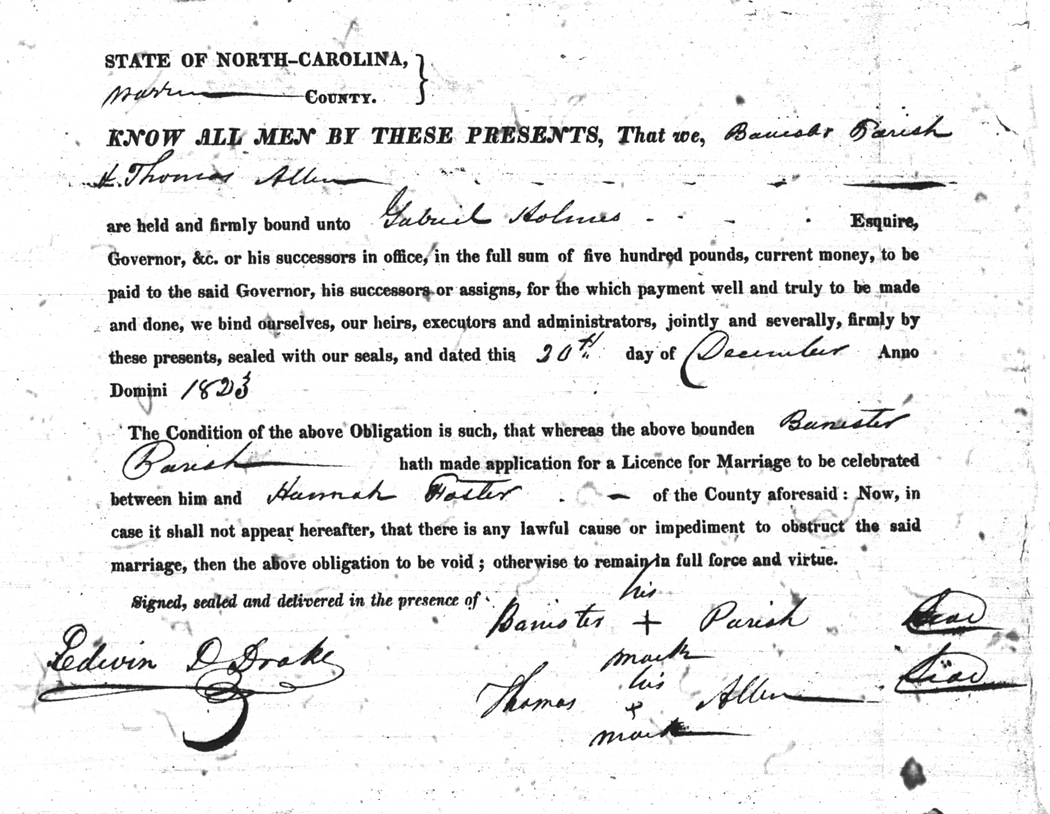 STATE OF NORTH-CAROLINA, }
Warren COUNTY.
KNOW ALL MEN BY THESE PRESENTS, That we, Banister Parish
& Thomas Allen
are held and firmly bound unto Gabriel Holmes Esquire,
Governor, &c. or his successors in office, in the full sum of five hundred pounds, current money, to be
paid to the said Governor, his successors or assigns, for the which payment well and truly to be made
and done, we bind ourselves, our heirs, executors and administrators, jointly and severally, firmly by
these presents, sealed with our seals, and dated this 20th day of December Anno
Domini 1823
The Condition of the above Obligation is such, that whereas the above bounden Banister
Parish hath made application for a Licence for Marriage to be celebrated
between him and Hannah Foster of the County aforesaid : Now, in
case it shall not appear hereafter, that there is any lawful cause or impediment to obstruct the said
marriage, then the above obligation to be void ; otherwise to remain in full force and virtue.
Signed, sealed and delivered in the presence of
his
Banister + Parish Seal
mark
Edwin D Drake
his
Thomas + Allen Seal
mark